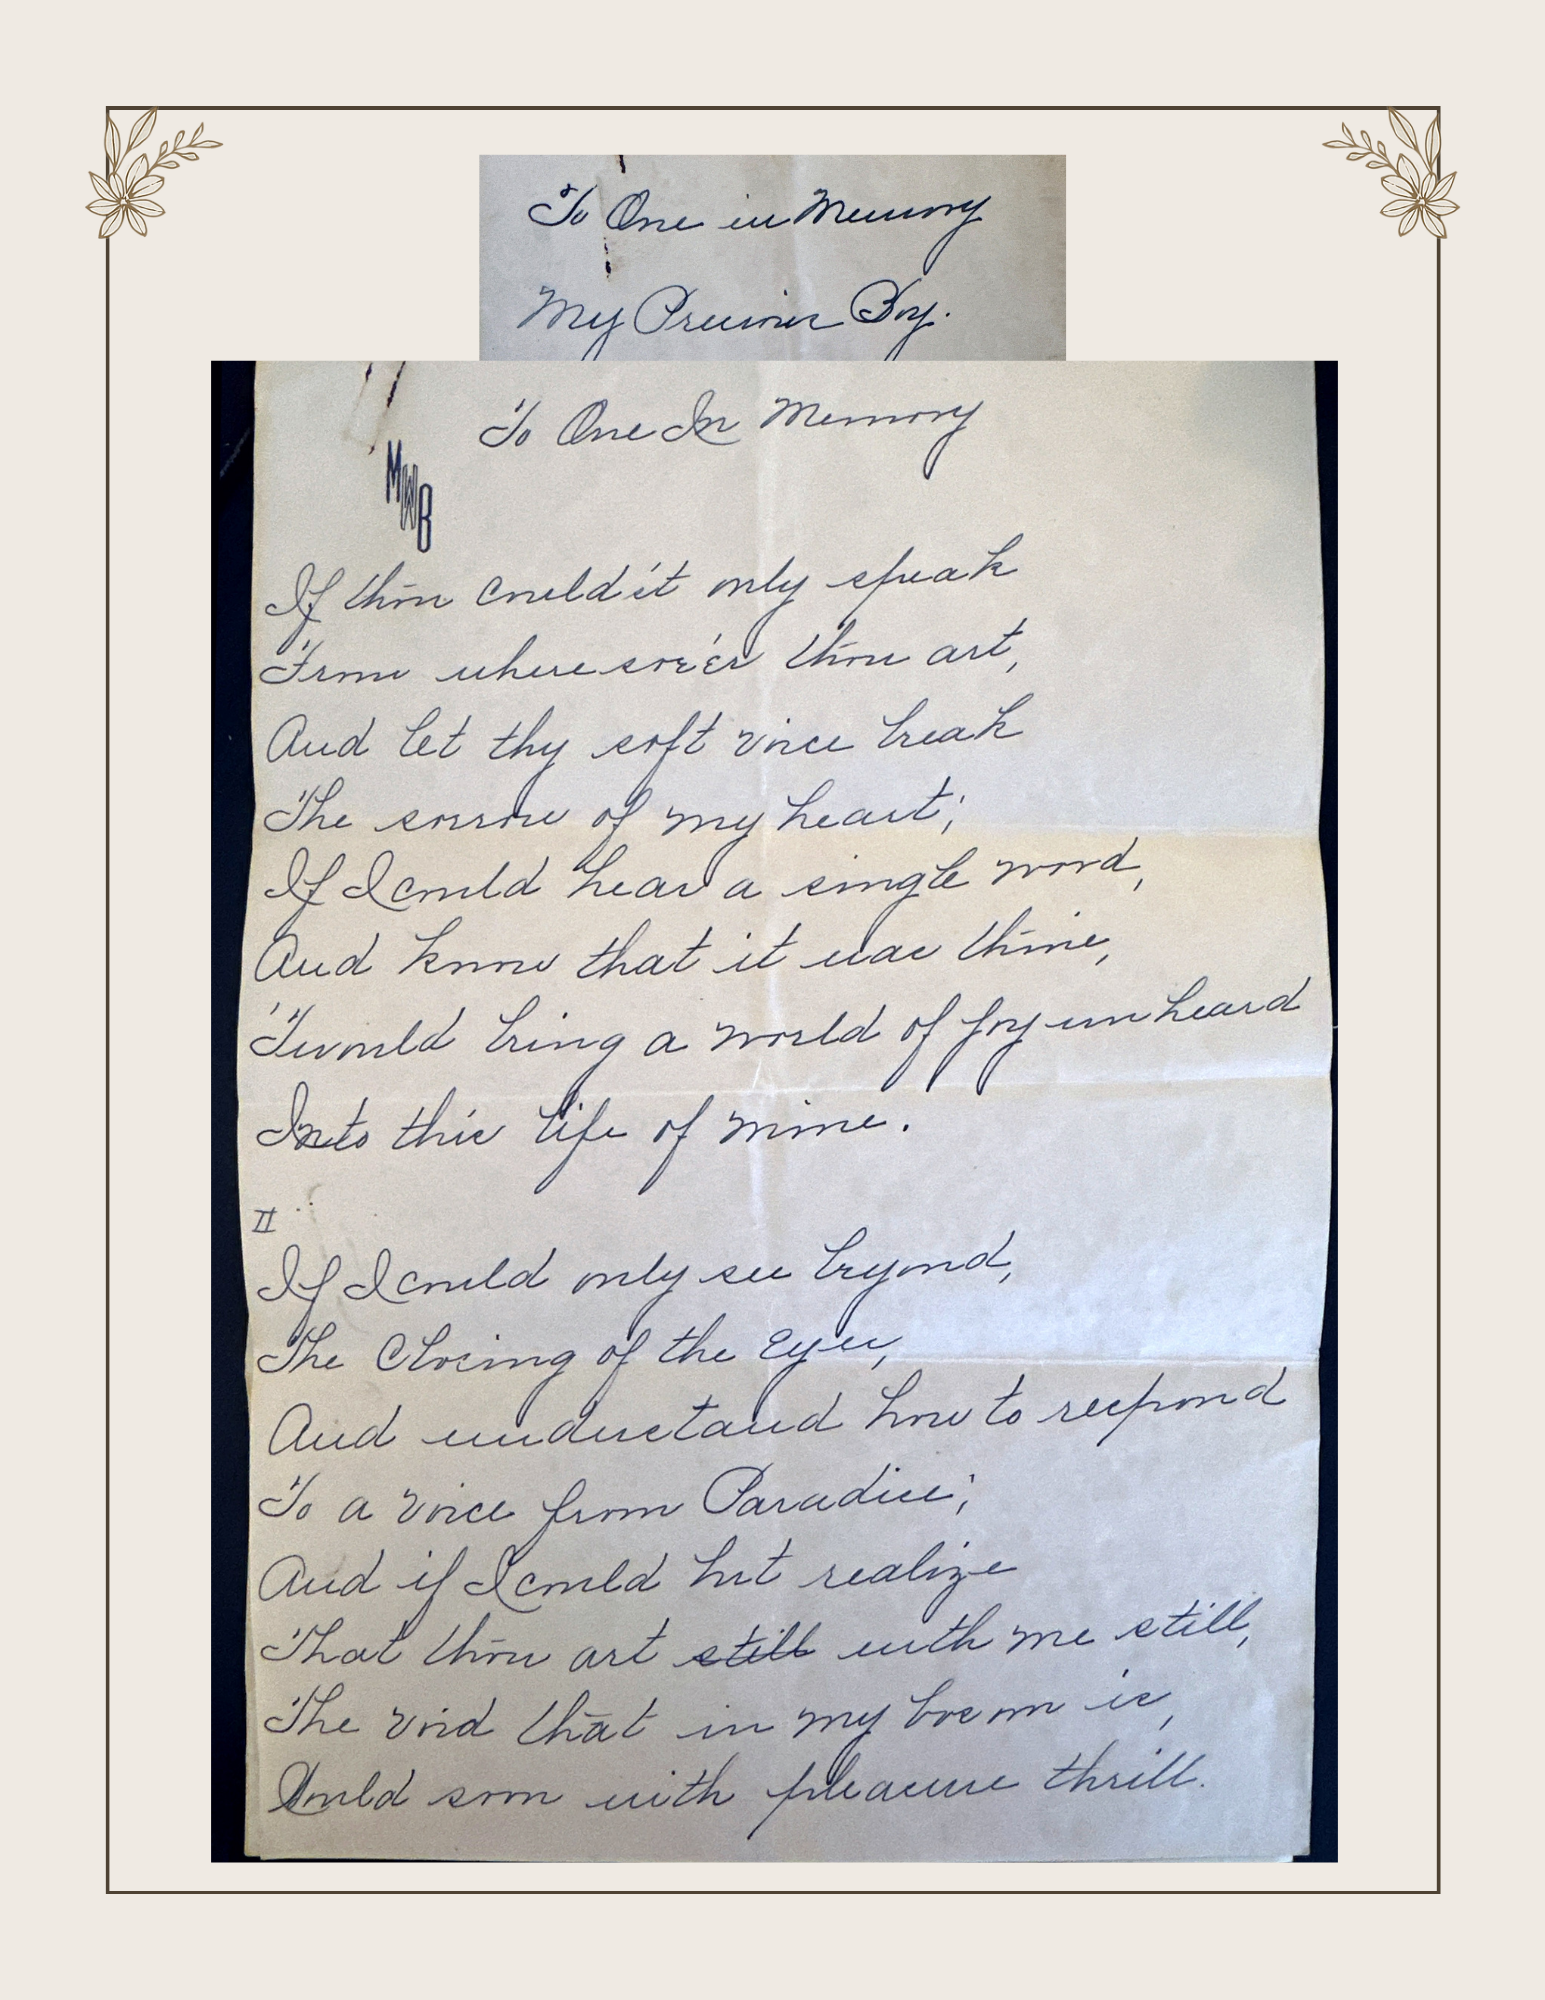 To One in Memory
My Precious Boy.
To One In Memory
MWB
If thou could'st only speak
From wheresoe'er thou art,
And let thy soft voice break
The sorrow of my heart;
If I could hear a single word,
And know that it was thine,
'Twould bring a world of joy unheard
Into this life of mine.
II
If I could only see beyond,
The Closing of the Eyes,
And understand how to respond
To a voice from Paradise;
And if I could but realize
That thou art still with me still,
The void that in my bosom is,
Would soon with pleasure thrill.